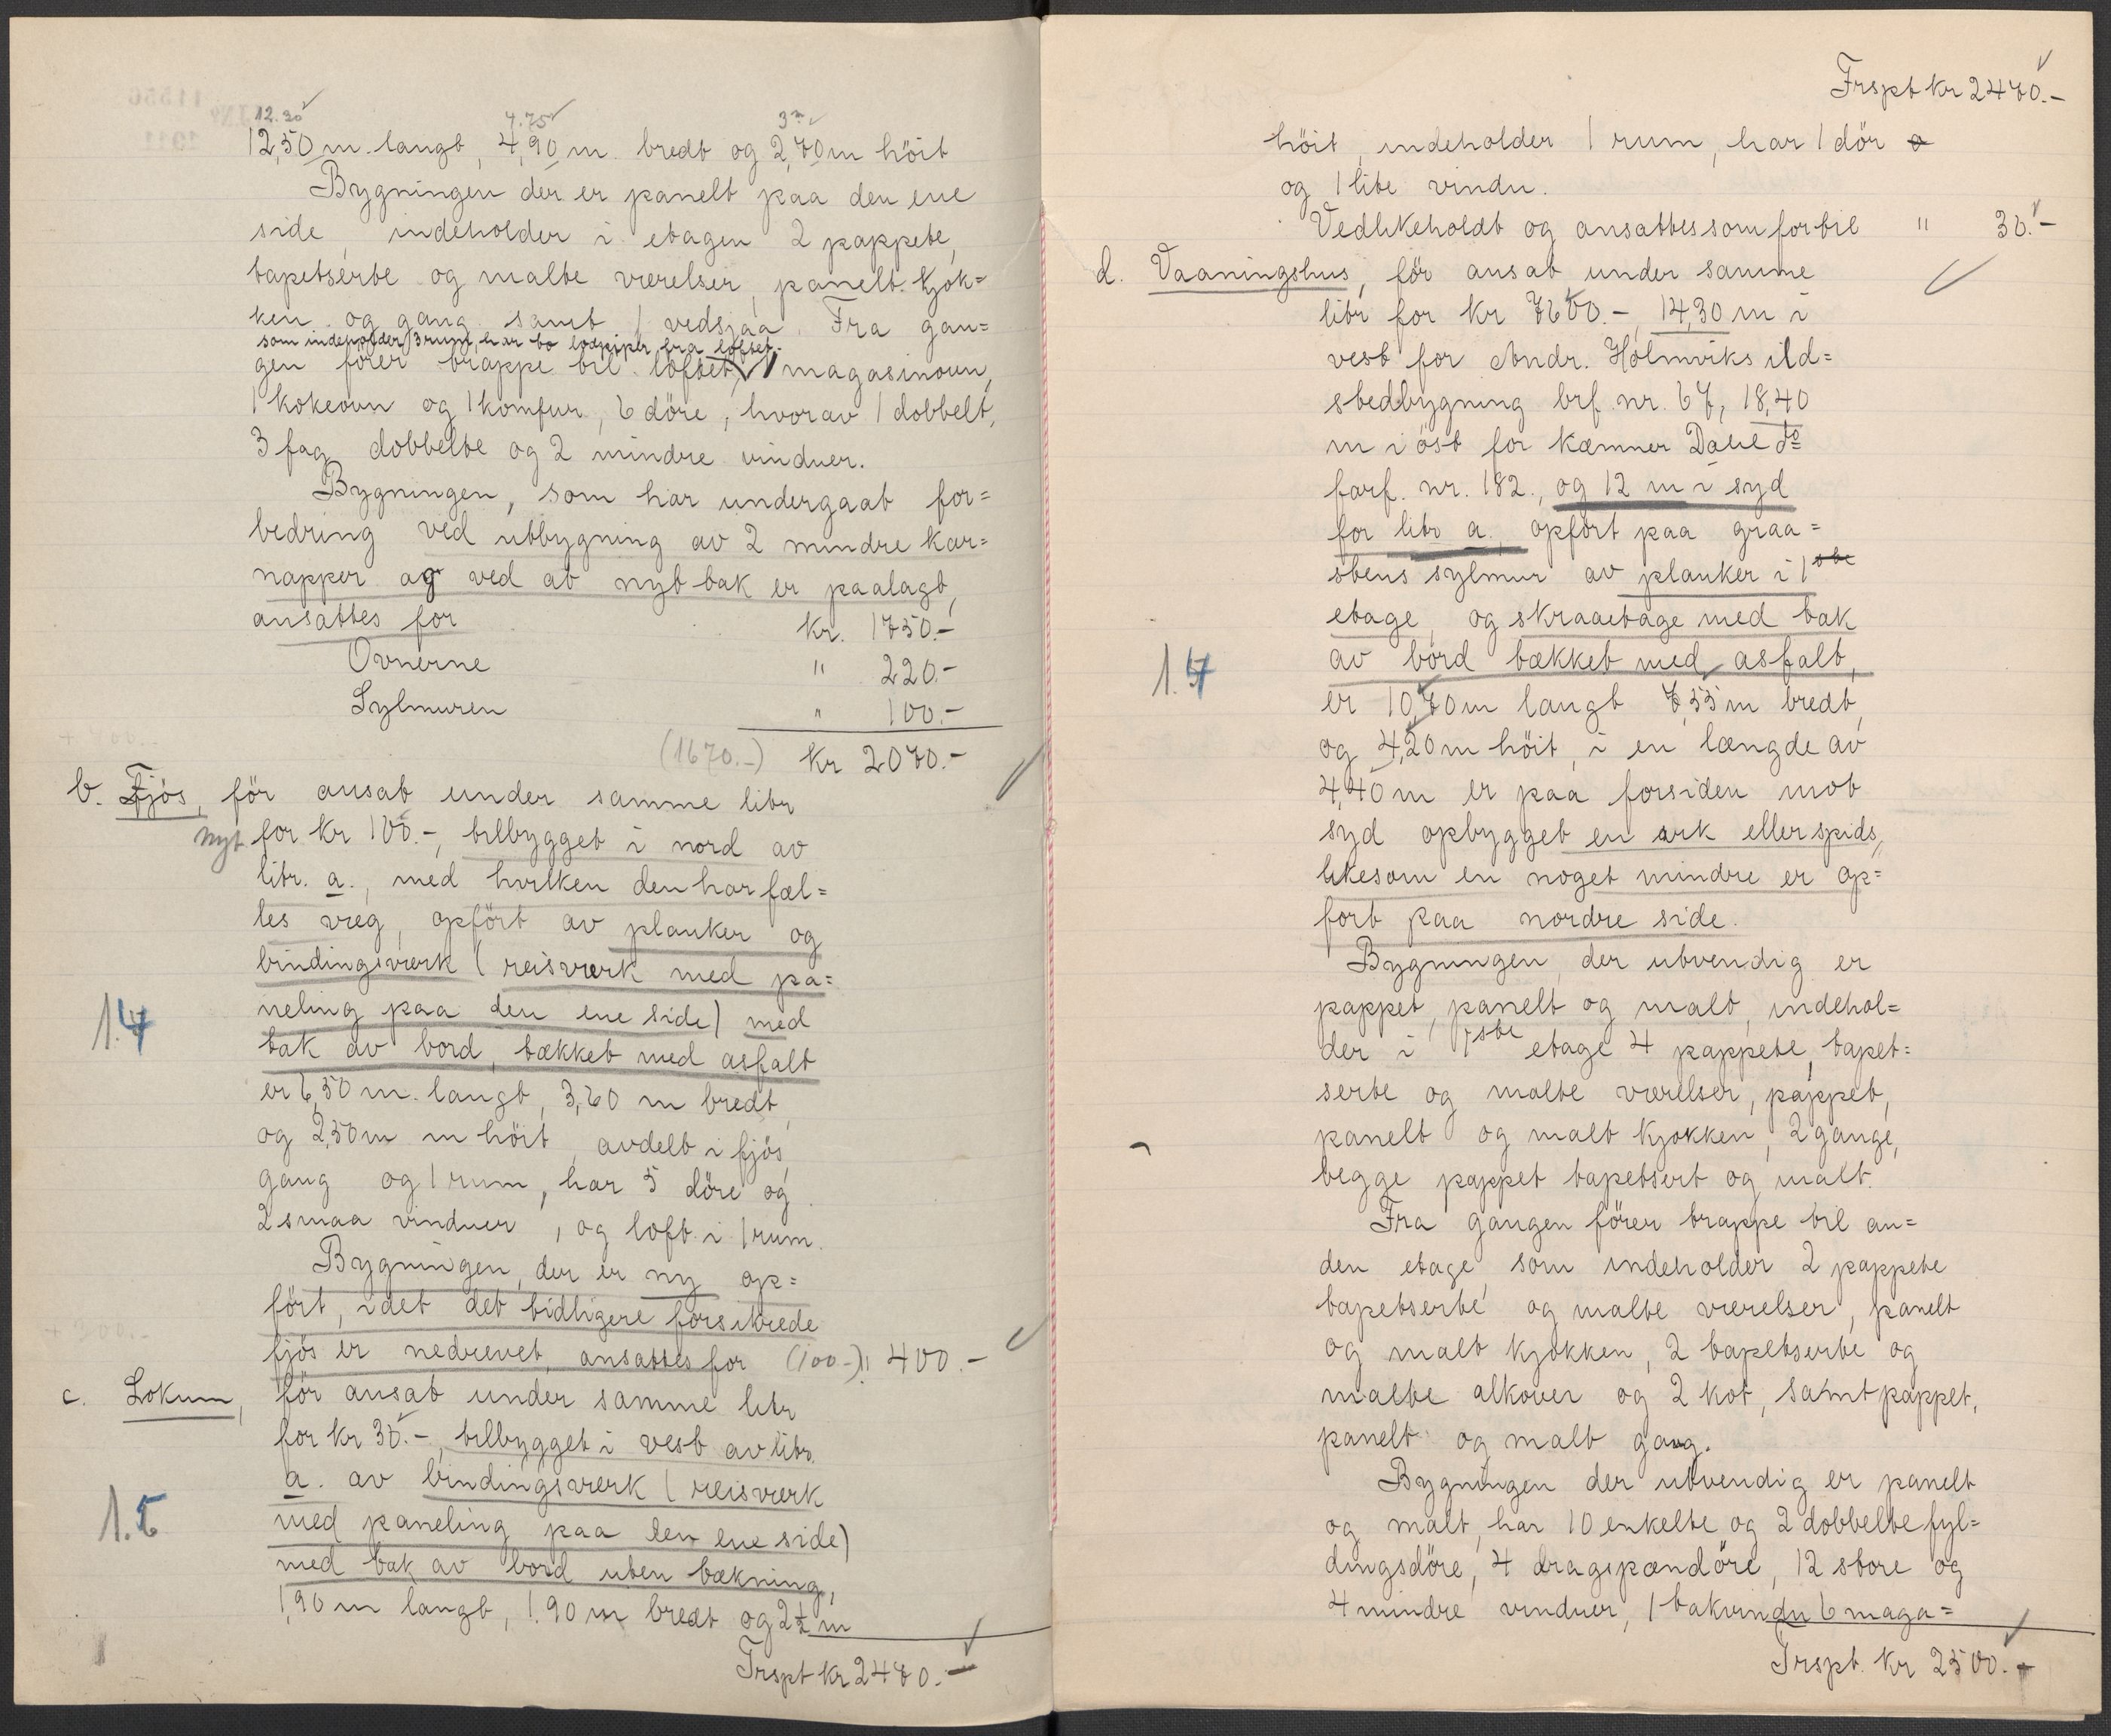 12.30 4.75 3
12,50 m. langt, 4,90 m. bredt og 2,70 m höit
Bygningen der er panelt paa den ene
side, indeholder i etagen 2 pappete,
tapetserte og malte værelser, panelt kjök=
ken og gang samt 1 vedsjaa. Fra gan=
som indeholder 3 rum har to lodpiper fra loftet.
gen förer trappe til loftet, 1 magasinovn,
1 kokeovn og 1 komfur, 6 döre, hvorav 1 dobbelt,
3 fag dobbelte og 2 mindre vinduer.
Bygningen, som har undergaat for=
bedring ved utbygning av 2 mindre kar=
napper og ved at nyt tak er paalagt,
ansattes for kr. 1750.-
Ovnerne " 220.-
Sylmuren " 100.-
(1670.-) Kr 2070.-
b. Fjös, för ansat under samme litr
nyt for Kr 100.-, tilbygget i nord av
litr. a., med hvilken den har fæl=
les væg, opfört av planker og
bindingsværk (reisværk med pa=
neling paa den ene side) med
1.4
tak av bord, tækket med asfalt
er 6,50 m. langt, 3,60 m bredt,
og 2,50 m m höit, avdelt i fjös,
gang og 1 rum, har 5 döre og
2 smaa vinduer, og loft i 1 rum.
Bygningen, der er ny op=
fört, idet det tidligere forsikrede
fjös er nedrevet, ansattes for (100.-) " 400.-
c. Lokum, för ansat under samme litr
for kr 30.-, tilbygget i vest av litr.
a. av bindingsværk (reisværk
1.5
med paneling paa den ene side)
med tak av bord uten tækning,
1,90 m langt, 1.90 m bredt og 2½ m
Trspt kr 2470.-
Frspt kr 2470.-
höit, indeholder 1 rum, har 1 dör
og 1 lite vindu.
Vedlikeholdt og ansattes som fortil " 30.-
d. Vaaningshus, för ansat under samme
litr for kr 7600.-, 14,30 m i
vest for Andr. Holmviks ild=
stedbygning brf. nr. 67, 18,40
m i öst for kæmner Dahl do
farf. nr. 182., og 12 m i syd
for litr a., opfört paa graa=
stens sylmur av planker i 1ste
etage, og skraaetage med tak
av bord tækket med asfalt,
1.4
er 10,70 m langt 7,55 m bredt,
og 4,20 m höit, i en længde av
4,40 m er paa forsiden mot
syd opbygget en ark eller spids,
likesom en noget mindre er op=
fort paa nordre side.
Bygningen, der utvendig er
pappet, panelt og malt, indehol=
der i 1ste etage 4 pappete, tapet=
serte og malte værelser, pappet,
panelt og malt kjökken, 2 gange,
begge pappet tapetsert og malt.
Fra gangen förer trappe til an=
den etage, som indeholder 2 pappete
tapetserte og malte værelser, panelt
og malt kjökken, 2 tapetserte og
malte alkover og 2 kot, samt pappet,
panelt og malt gang.
Bygningen der utvendig er panelt
og malt, har 10 enkelte og 2 dobbelte fyl=
dingsdöre, 4 dragspændöre, 12 store og
4 mindre vinduer, 1 takvindu 6 maga=
Trspt. Kr 2500.-